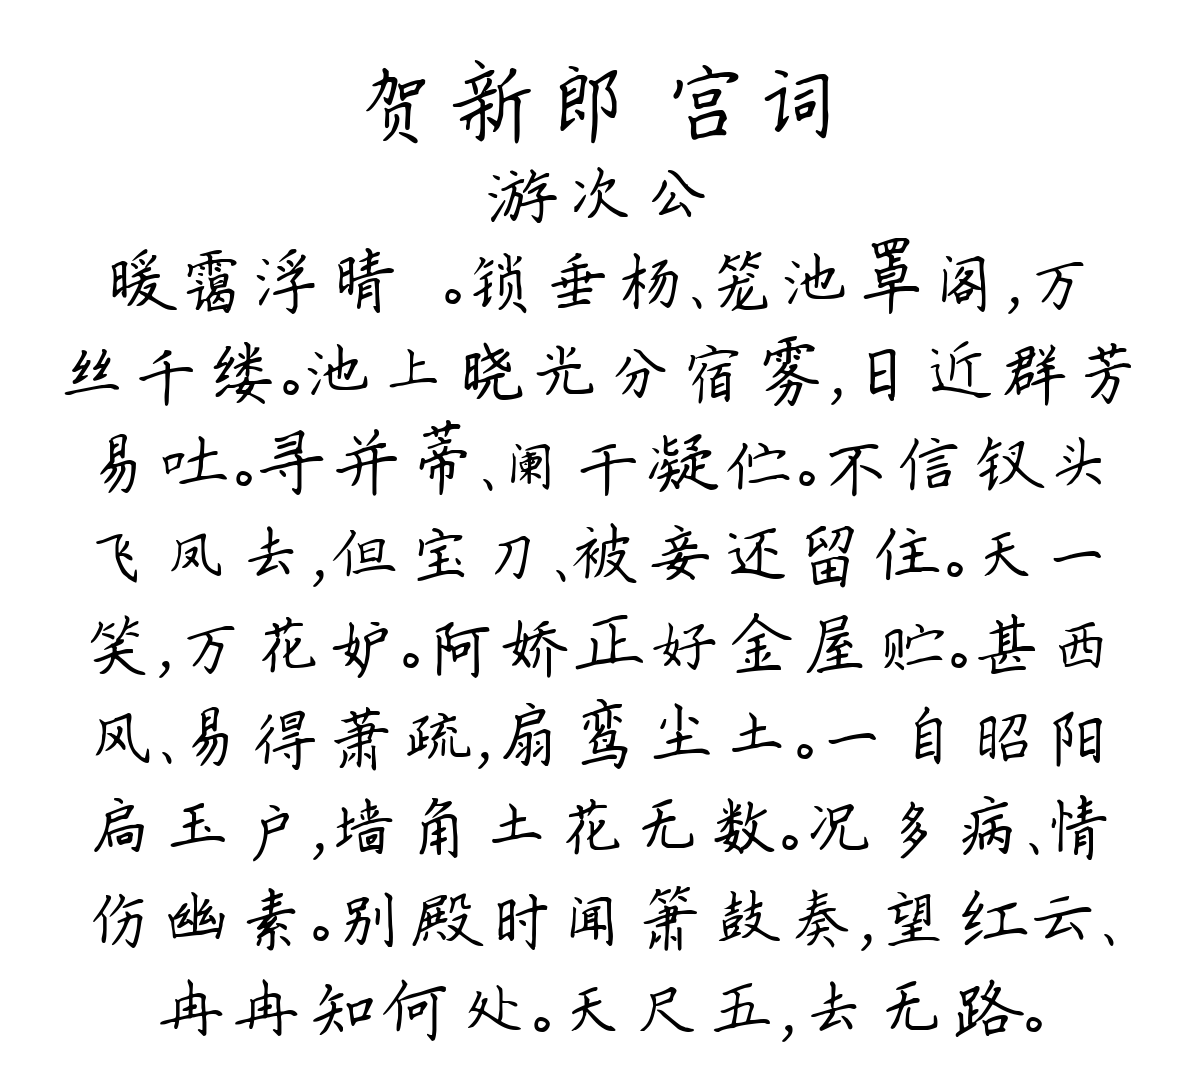 贺新郎 宫词
游次公
暖霭浮晴 。锁垂杨、笼池罩阁,万
丝千缕。池上晓光分宿雾,日近群芳
易吐。寻并蒂、阑干凝伫。不信钗头
飞凤去,但宝刀、被妾还留住。天一
笑,万花妒。阿娇正好金屋贮。甚西
风、易得萧疏,扇鸾尘土。一自昭阳
扃玉户,墙角土花无数。况多病、情
伤幽素。别殿时闻箫鼓奏,望红云、
冉冉知何处。天尺五,去无路。